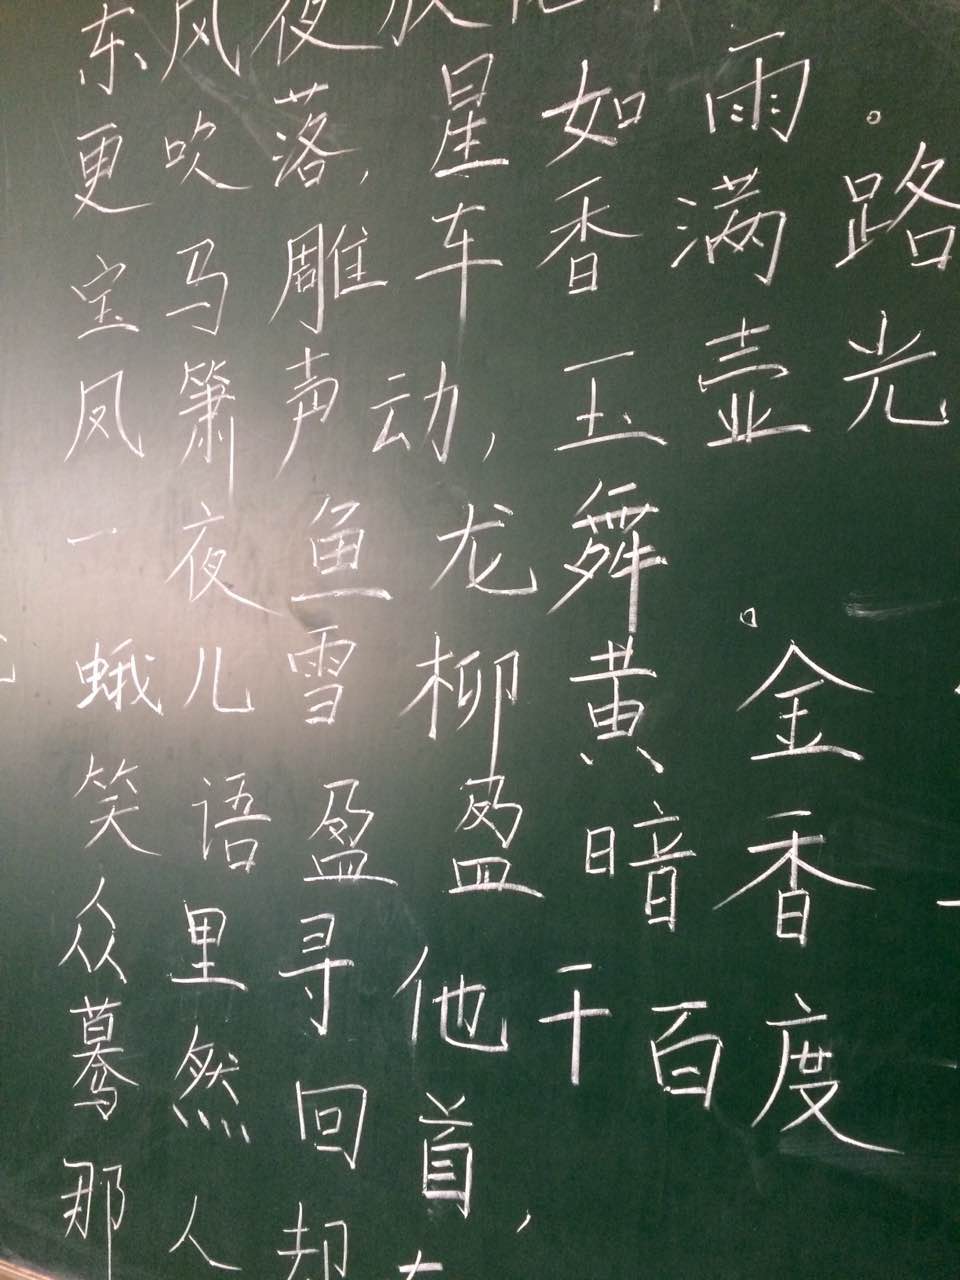 东风夜放
更吹落，星如雨。
宝马雕车香满路
凤箫声动，玉壶光
一夜鱼龙舞。
蛾儿雪柳黄金
笑语盈盈暗香
众里寻他千百度
蓦然回首，
那人却